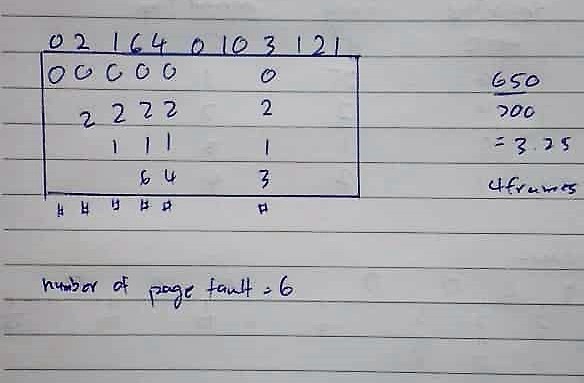 0 2 1 6 4 0 1 0 3 1 2 1
0 0 0 0 0 0
2 2 2 2 2
1 1 1 1
6 4 3
# # # # # #
650
200
= 3.25
4 frames
number of page fault = 6